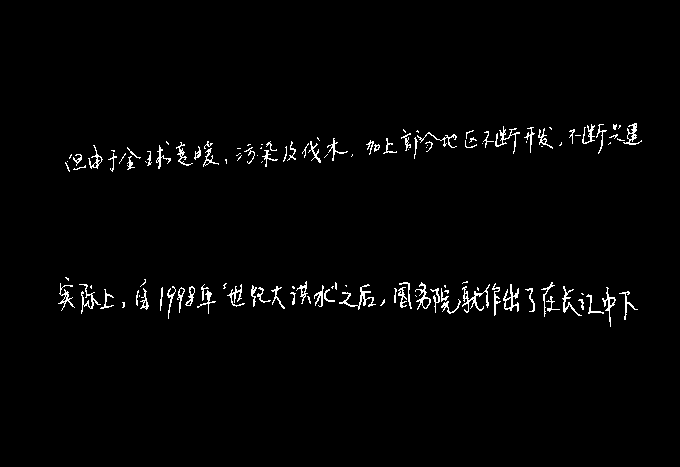 但由于全球变暖,污染及伐木,加上部分地区不断开发,不断兴建
实际上,自1998年“世纪大洪水”之后,国务院就作出了在长江中下